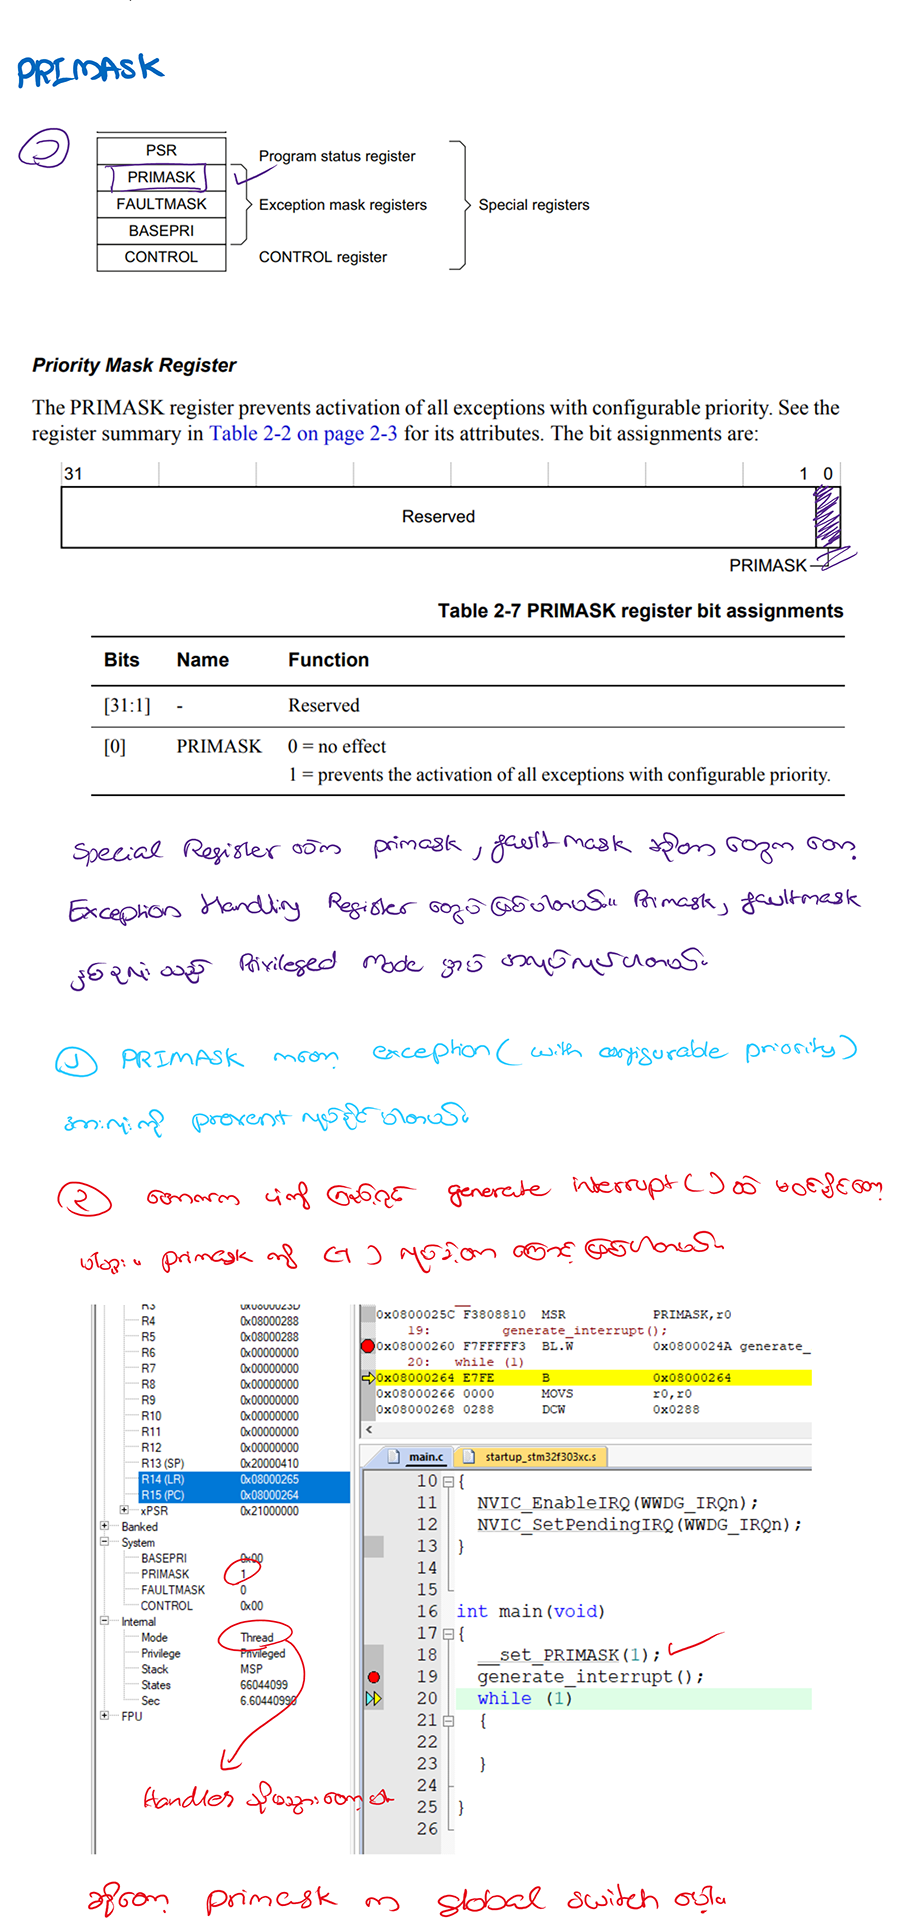 PRIMASK
၁
PSR
PRIMASK
FAULTMASK
BASEPRI
CONTROL
Program status register
Exception mask registers
CONTROL register
Special registers
Priority Mask Register
The PRIMASK register prevents activation of all exceptions with configurable priority. See the
register summary in Table 2-2 on page 2-3 for its attributes. The bit assignments are:
31 1 0
Reserved
PRIMASK
Table 2-7 PRIMASK register bit assignments
Bits Name Function
[31:1] - Reserved
[0] PRIMASK 0 = no effect
1 = prevents the activation of all exceptions with configurable priority.
Special Register ထဲက primask, fault mask ဆိုတာ တွေက တော့
Exception Handling Register တွေပဲ ဖြစ်ပါတယ်။ Primask, faultmask
နှစ်ခုလုံး သည် Privileged Mode မှာပဲ အလုပ်လုပ်ပါတယ်။
၁ PRIMASK ကတော့ exception ( with configurable priority )
အားလုံးကို prevent လုပ်နိုင်ပါတယ်။
၂ အောက်က ပုံကို ကြည့်ရင် generate interrupt ( ) ထဲ မဝင်နိုင်တော့
ပါဘူး။ primask ကို ( 1 ) လုပ်ခဲ့တာ ကြောင့် ဖြစ်ပါတယ်။
R3 0x0800023D
R4 0x08000288
R5 0x08000288
R6 0x00000000
R7 0x00000000
R8 0x00000000
R9 0x00000000
R10 0x00000000
R11 0x00000000
R12 0x00000000
R13 (SP) 0x20000410
R14 (LR) 0x08000265
R15 (PC) 0x08000264
xPSR 0x21000000
Banked
System
BASEPRI 0x00
PRIMASK 1
FAULTMASK 0
CONTROL 0x00
Internal
Mode Thread
Privilege Privileged
Stack MSP
States 66044099
Sec 6.60440990
FPU
0x0800025C F3808810 MSR PRIMASK,r0
19: generate_interrupt();
0x08000260 F7FFFFF3 BL.W 0x0800024A generate_
20: while (1)
0x08000264 E7FE B 0x08000264
0x08000266 0000 MOVS r0,r0
0x08000268 0288 DCW 0x0288
main.c startup_stm32f303xc.s
10 {
11 NVIC_EnableIRQ(WWDG_IRQn);
12 NVIC_SetPendingIRQ(WWDG_IRQn);
13 }
14
15
16 int main(void)
17 {
18 __set_PRIMASK(1);
19 generate_interrupt();
20 while (1)
21 {
22
23 }
24
25 }
26
Handler သို့မသွားတော့ပါ
ဆိုတော့ primask က global switch ပေါ့။